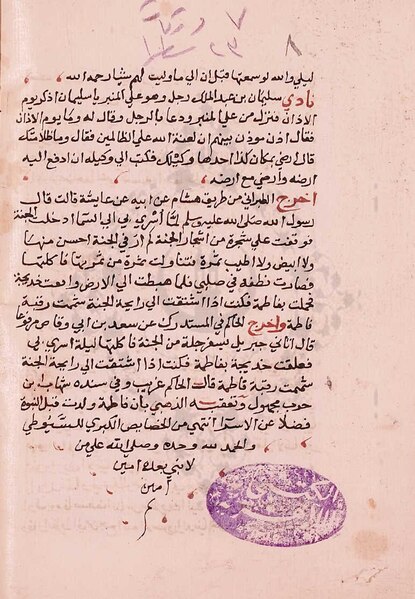 ٧ ورقات
٢٣ سطرا
٨
ليلي والله لو سمعها قبل ان الي ما وليت لهم شيا رحمه الله
نادي سليمان بن عبد الملك رجل وهو علي المنبر يا سليمان اذكر يوم
الاذان فنزل من علي المنبر ودعا بالرجل وقال له وما يوم الاذان
فقال اذن موذن بينهم ان لعنة الله علي الظالمين فقال وما ظلامتك
قال ارضي بمكان كذا اخذها وكيلك فكتب الي وكيله ان ادفع اليه
ارضه وارضي مع ارضه
اخرج الطبراني من طريق هشام عن ابيه عن عايشة قالت قال
رسول الله صلي الله عليه وسلم لما أسري بي الي السما ادخلت الجنة
فوقفت علي شجرة من اشجار الجنة لم ار في الجنة احسن منها
ولا ابيض ولا اطيب ثمرة فتناولت ثمرة من ثمرتها فاكلتها
فصارت نطفة في صلبي فلما هبطت الي الارض واقعت خديجة
فحملت بفاطمة فكنت اذا اشتقت الي رايحة الجنة شممت رقبة
فاطمة واخرج الحاكم في المستدرك عن سعد بن ابي وقاص مرفوعا
قال اتاني جبريل بسفرجلة من الجنة فاكلتها ليلة اسري بي
فعلقت خديجة بفاطمة فكنت اذا اشتقت الي رايحة الجنة
شممت رقبة فاطمة قالت الحاكم غريب وفي سنده شهاب بن
حرب مجهول وتعقبه الذهبي بان فاطمة ولدت قبل النبوة
فضلا عن الاسرا انتهي من الخصايص الكبري للسيوطي
والحمد لله وحده وصلي الله علي من
لا نبي بعده امين
امين
م